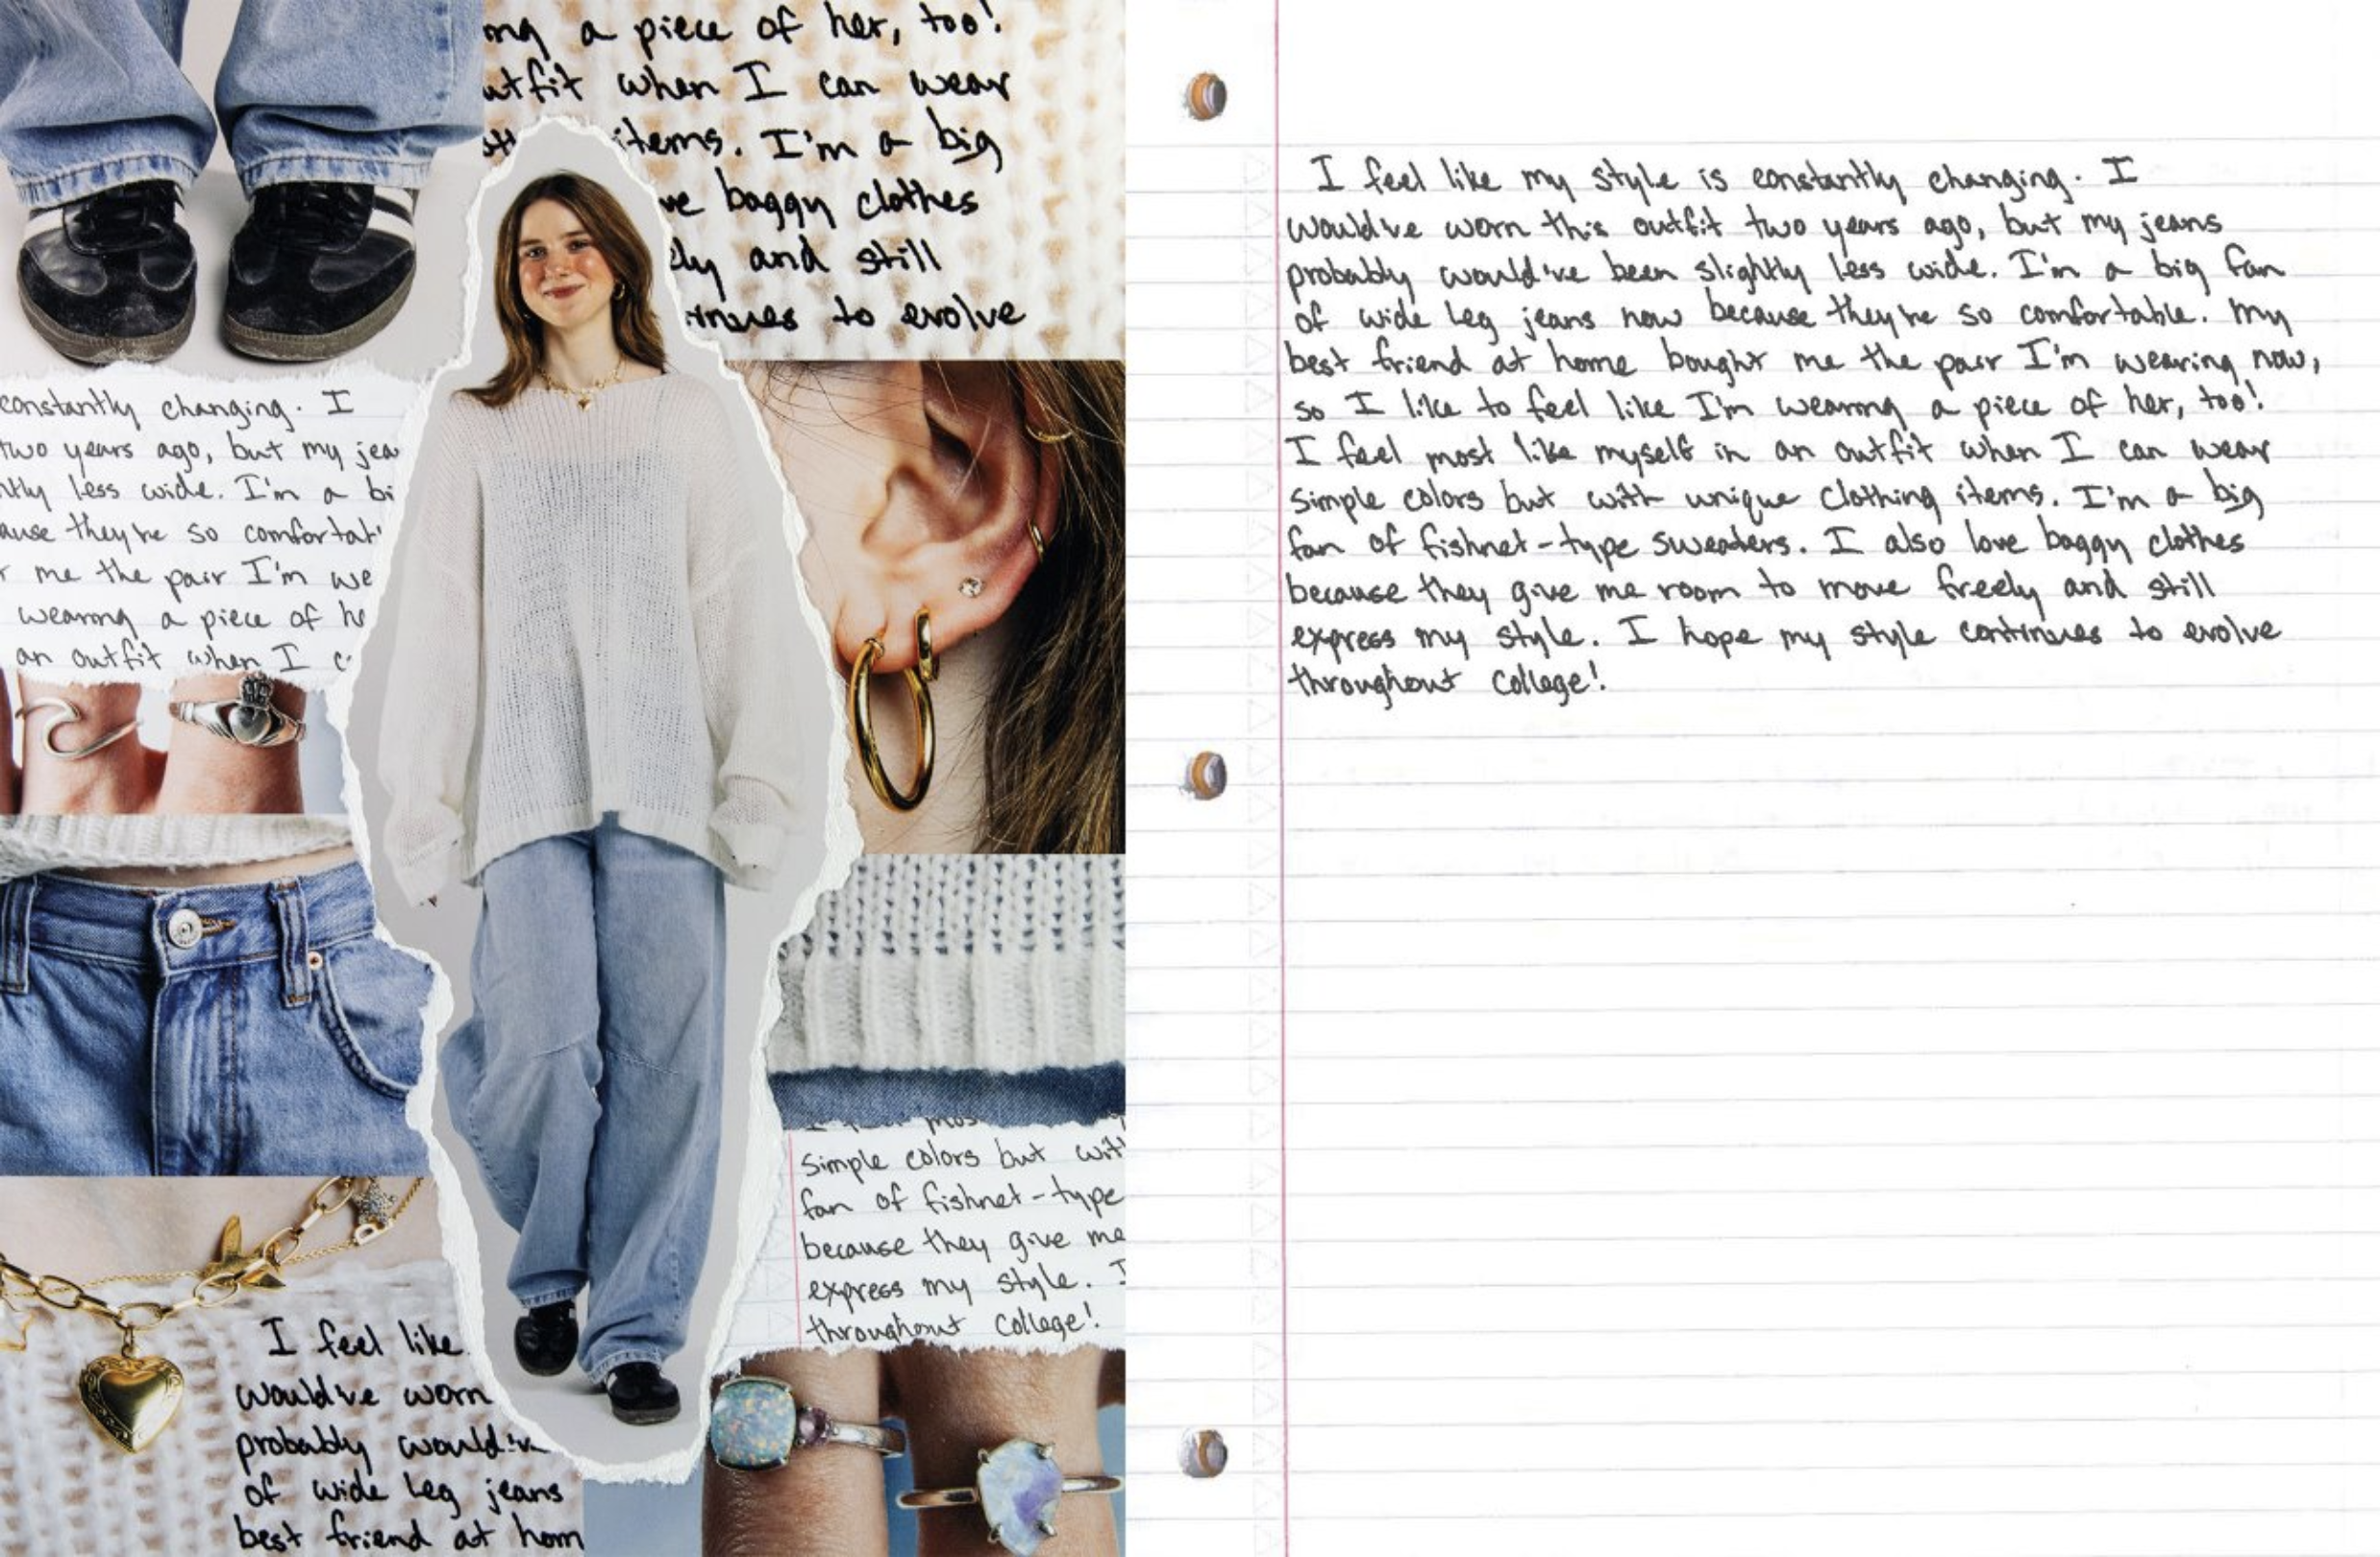 ng a piece of her, too!
utfit when I can wear
items. I'm a big
ve baggy clothes
ely and still
inues to evolve
constantly changing. I
two years ago, but my jea
ntly less wide. I'm a bi
ause they're so comfortabl
r me the pair I'm we
wearing a piece of he
an outfit when I c
I feel mos
Simple colors but wit
fan of fishnet-type
because they give me
express my style. I
throughout college!
I feel like
would've worn
probably would'v
of wide leg jeans
best friend at hom
I feel like my style is constantly changing. I
would've worn this outfit two years ago, but my jeans
probably would've been slightly less wide. I'm a big fan
of wide leg jeans now because they're so comfortable. My
best friend at home bought me the pair I'm wearing now,
so I like to feel like I'm wearing a piece of her, too!
I feel most like myself in an outfit when I can wear
simple colors but with unique clothing items. I'm a big
fan of fishnet-type sweaters. I also love baggy clothes
because they give me room to move freely and still
express my style. I hope my style continues to evolve
throughout college!